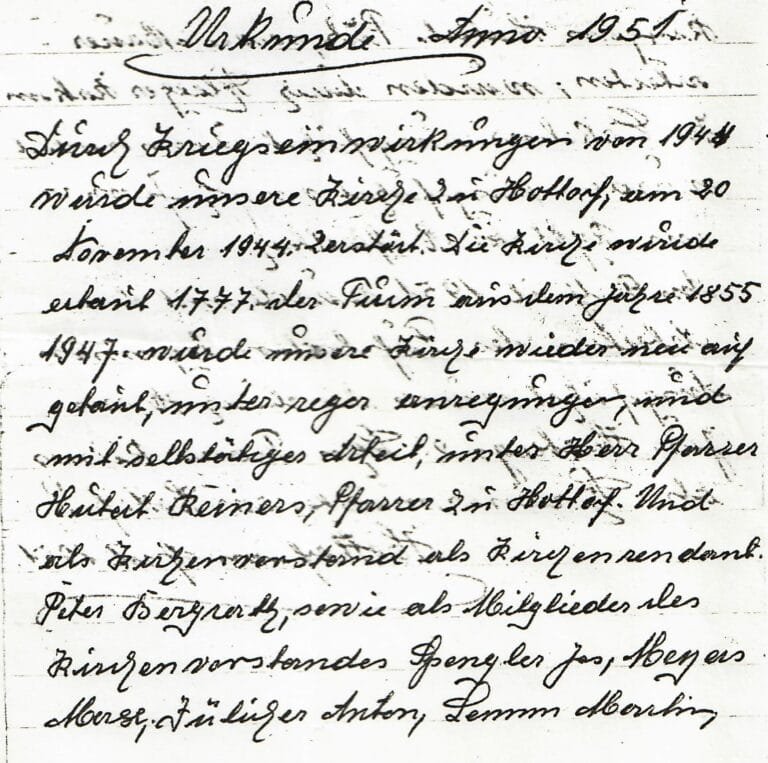 Urkunde Anno 1951
Durch Kriegseinwirkungen von 1944
wurde unsere Kirche zu Hottorf, am 20
November 1944. zerstört. Die Kirche wurde
erbaut 1777. der Turm aus dem Jahre 1855
1947. wurde unsere Kirche wieder neu auf
gebaut, unter reger anregungen, und
mit selbstätiger Arbeit, unter Herr Pfarrer
Hubert Reiners, Pfarrer zu Hottorf. Und
als Kirchenvorstand als Kirchenrendant.
Peter Bergrath, sowie als Mitglieder des
Kirchenvorstandes Spengler Jos, Meyers
Jülicher Anton, Lemm